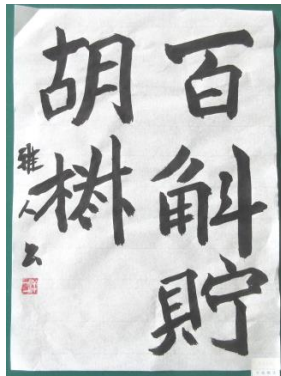 百斛貯
胡椒
雅人